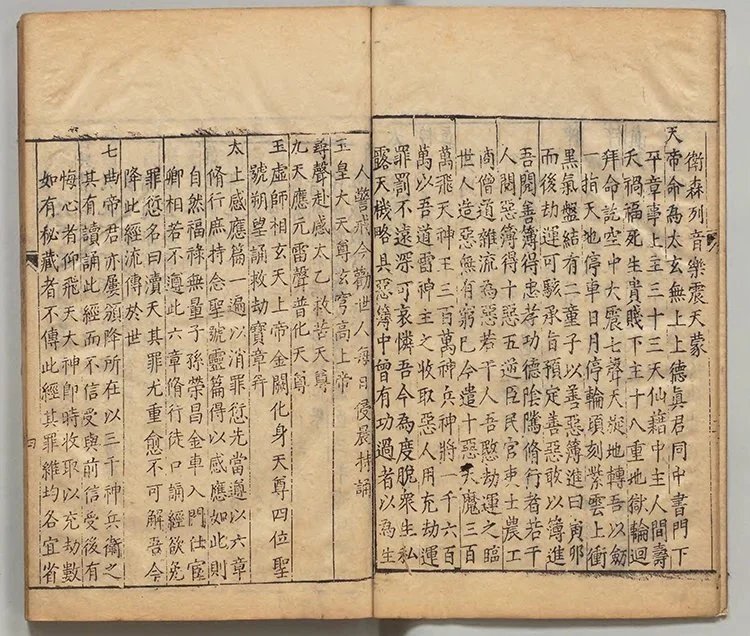 衛森列音樂震天蒙
天帝命為太玄無上上德真君同中書門下
平章事上主三十三天仙籍中主人間壽
夭禍福死生貴賤下主十八重地獄輪迴
拜命訖空中大震七聲天旋地轉吾以劒
一指天地停車日月停輪頃刻紫雲上衝
黑氣盤結有二童子以善惡簿進曰寅卯
而後劫運可駭承旨預定善惡敢以簿進
吾閱善簿得忠孝功德陰隲脩行者若干
人閱惡簿得十惡五逆臣民官吏士農工
商僧道雜流為惡若干人吾愍劫運之臨
世人造惡無有窮已今遣十惡大魔三百
萬飛天神王三百萬神兵神將一千六百
萬以吾道雷神主之收取惡人用充劫運
罪罰不遠深可哀憐吾今為度脫衆生私
露天機略具惡簿中曾有功過者以為生
人警戒今勸世人每日侵晨持誦
玉皇大天尊玄穹高上帝
尋聲赴感太乙救苦天尊
九天應元雷聲普化天尊
玉虛師相玄天上帝金闕化身天尊四位聖
號朔望誦救劫寶章并
太上感應篇一遍以消罪愆尤當遵以六章
脩行庶持念聖號靈篇得以感應如此則
自然福祿無量子孫榮昌金車入門仕宦
卿相若不遵此六章脩行徒口誦經欲免
罪愆名曰瀆天其罪尤重愈不可解吾今
降此經流傳於世
七曲帝君亦屢頒降所在以三千神兵衞之
其有讀誦此經而不信受與前信受後有
悔心者仰飛天大神卽時收取以充劫數
如有秘藏者不傳此經其罪維均各宜省
四